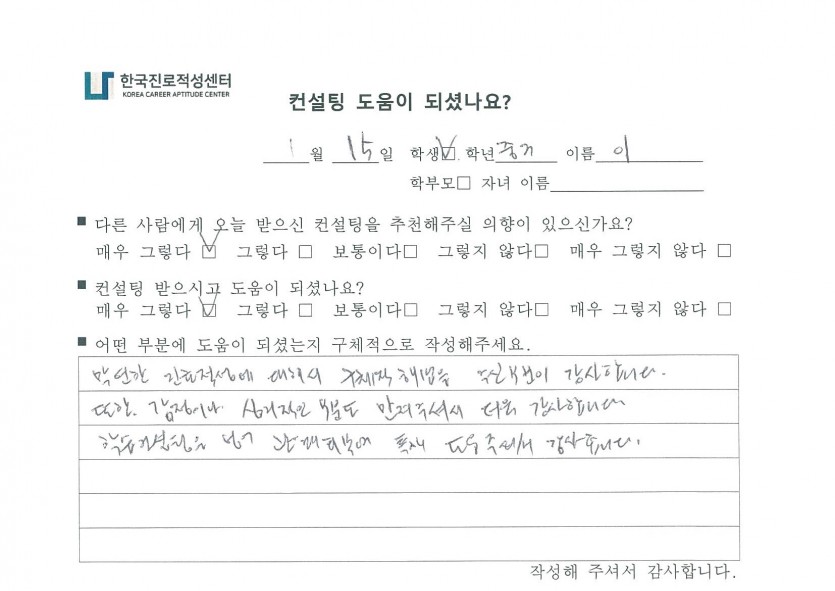 한국진로적성센터
KOREA CAREER APTITUDE CENTER
컨설팅 도움이 되셨나요?
1월 15일 학생☑. 학년 이름 이
학부모□ 자녀 이름
■ 다른 사람에게 오늘 받으신 컨설팅을 추천해주실 의향이 있으신가요?
매우 그렇다 ☑ 그렇다 □ 보통이다□ 그렇지 않다□ 매우 그렇지 않다 □
■ 컨설팅 받으시고 도움이 되셨나요?
매우 그렇다 ☑ 그렇다 □ 보통이다□ 그렇지 않다□ 매우 그렇지 않다 □
■ 어떤 부분에 도움이 되셨는지 구체적으로 작성해주세요.
막연한 진로적성에 대해서 구체적 해법을 주신 감사합니다.
또한, 감정이나 심리적인 부분도 만져주셔서 더욱 감사합니다
학습컨설팅을 넘어 도움주셔서 감사합니다.
작성해 주셔서 감사합니다.